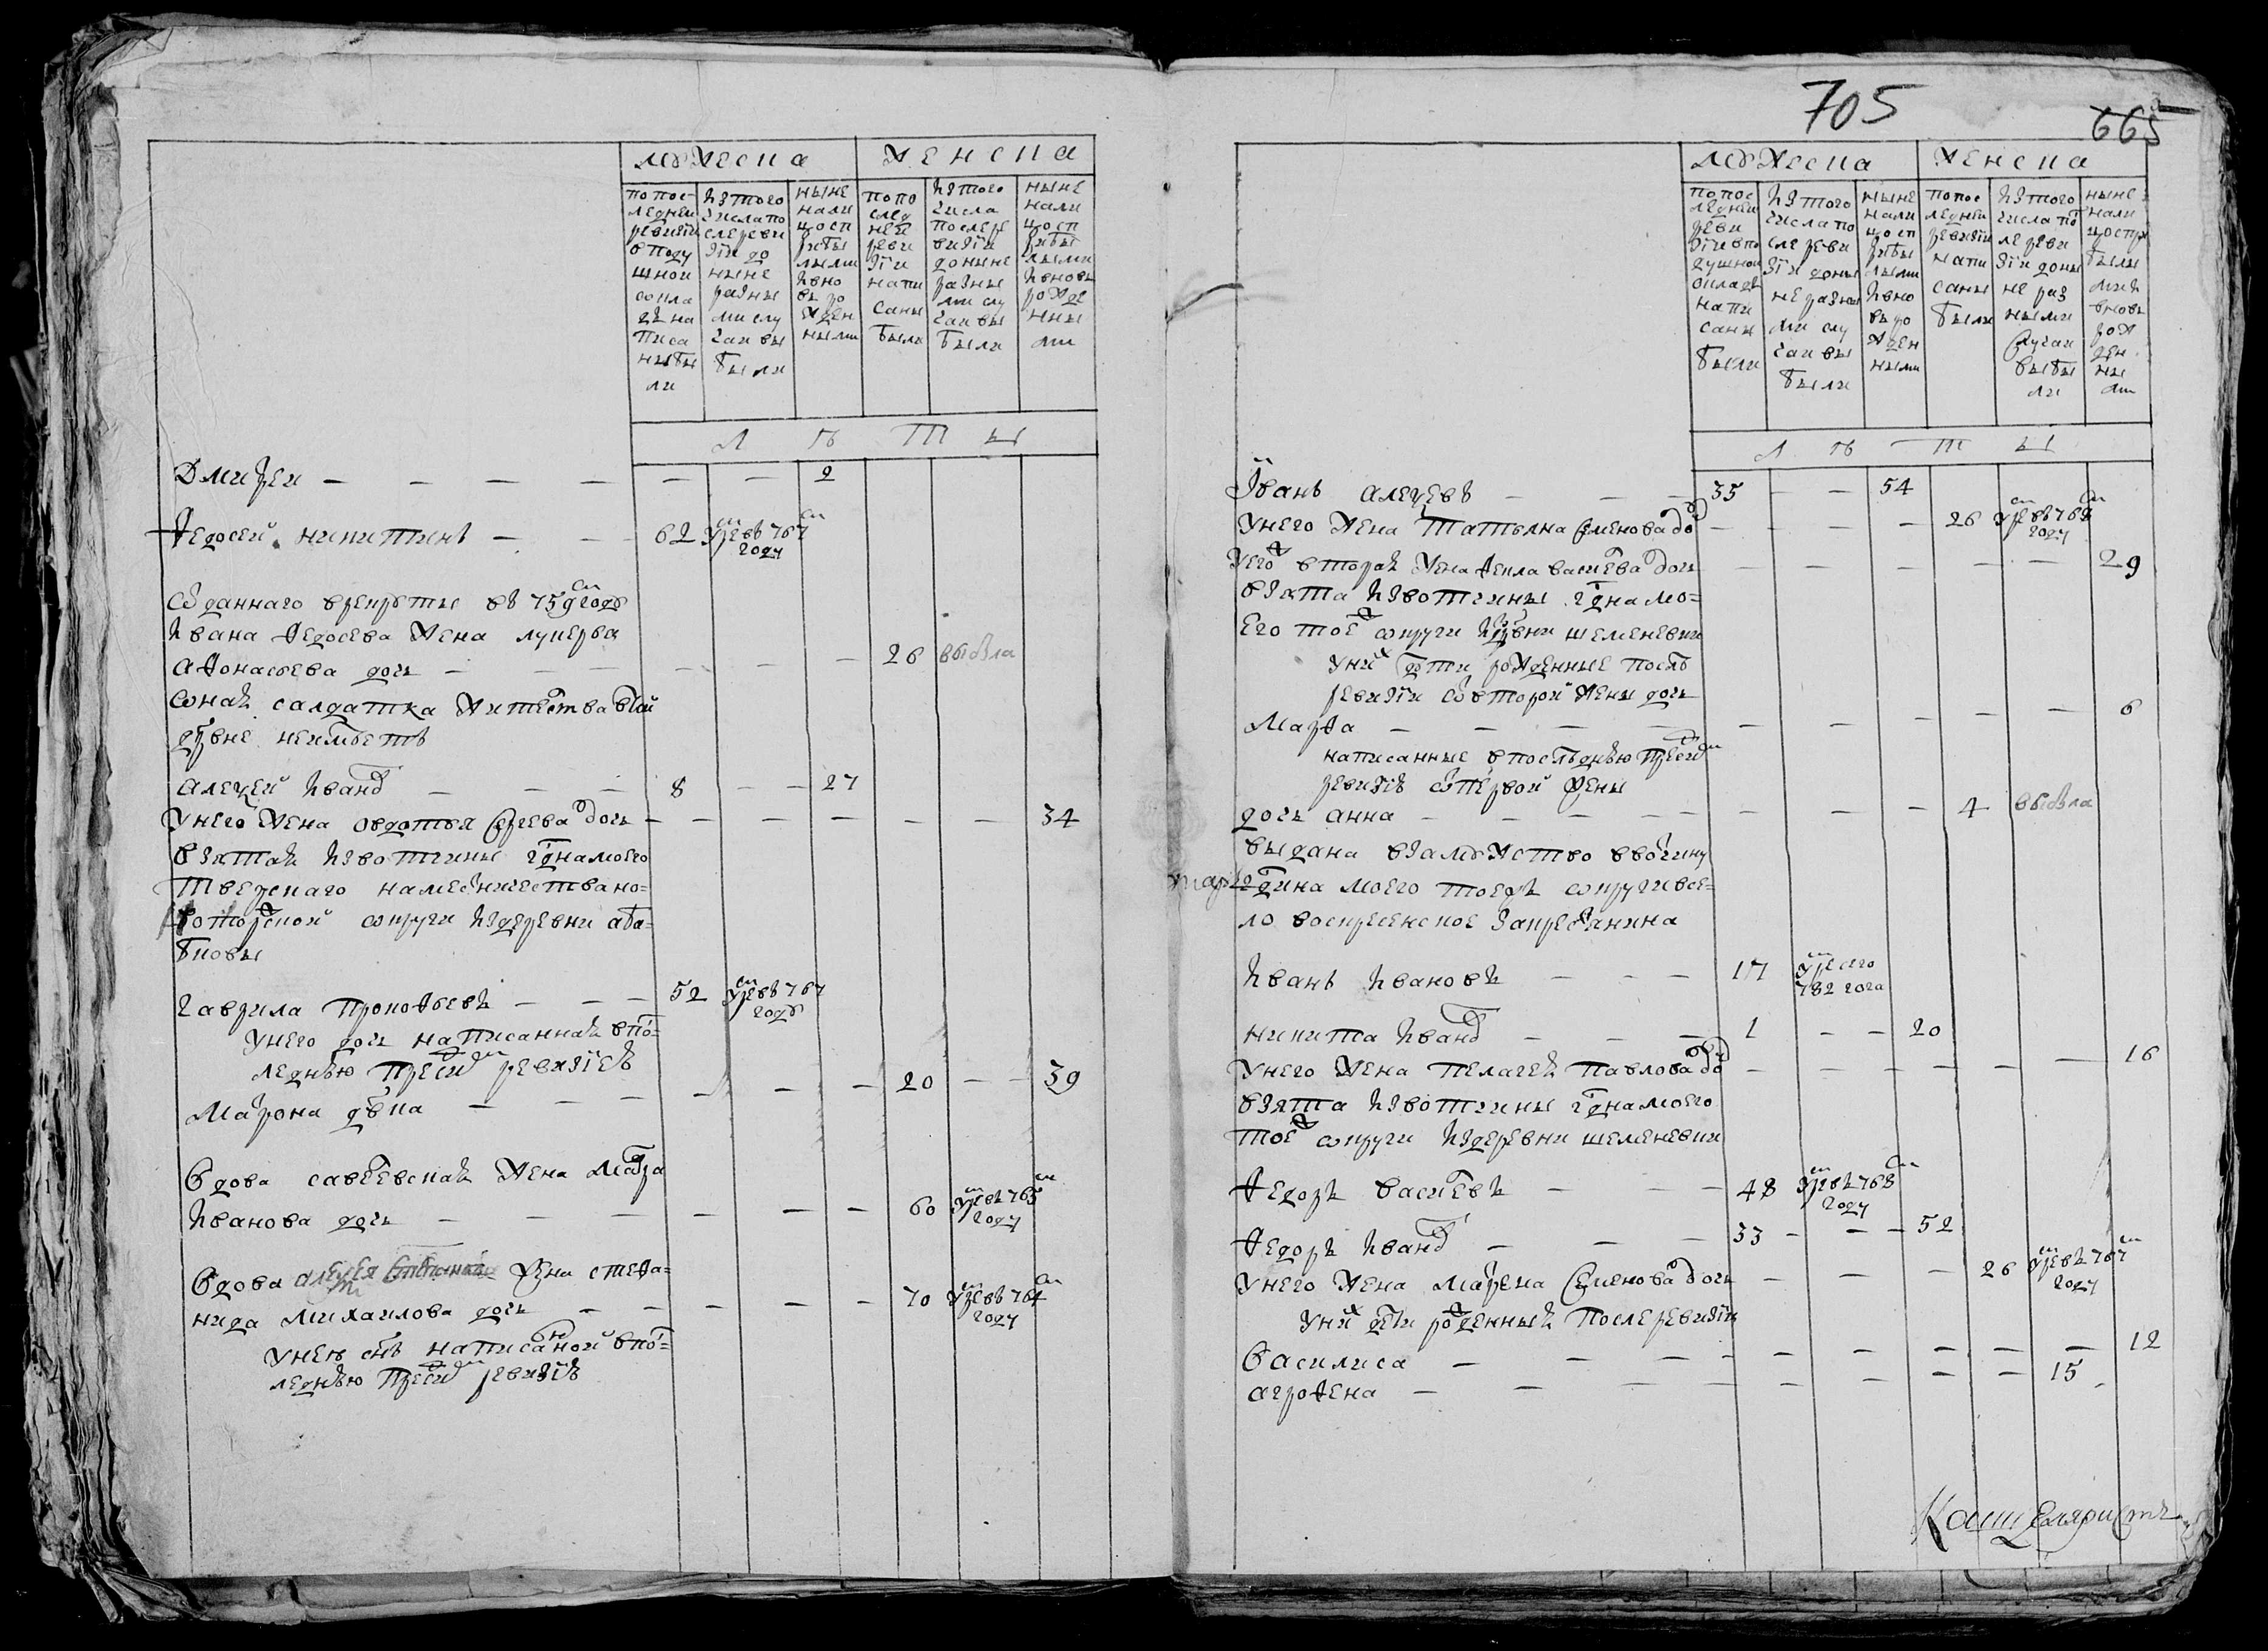 705
665
мужеска женска
попос- ледней ревизiи вподу шной окла де на писа ны бы ли
изтого числа по слереви зiи до ныне разны ми слу чаи вы были
ныне нали цосп рибы лыми ивно вь ро жден ными
попо след ней реви зiи напи саны были
изтого числа послере визiи доныне разны ми слу чаи вы были
ныне нали цосп рибы лыми ивновь рожде нны ми
л ѣ т ы
Дмитреи — — — — — — 2
Ѳедосеи никитинъ — — 62 умре въ 767 году
Отданнаго врекруты въ 759 году
ивана Ѳедосева жена лукерья
аѳонасьева дочь — — — — — — 26 выбыла
оная салдатка жителства втои
дрвне неимѣетъ
алеѯеи ивано — — — 8 — — 27
унего жена овдотья сергева дочь — — — — — — 34
взятая извотчины гдна моего
тверскаго намесничества но=
воторжской округи издеревни аба=
бковы
гаврила прокоѳьевъ — — — 52 умре въ 767 году
унего дочь написанная впо=
леднѣю пред сим ревизiю
матрона дѣвка — — — — — — 20 — — 39
Вдова савельевская жена
иванова дочь — — — — — — 60 умре въ 765 году
Вдова алеѯея жена стеѳа=
нида михаилова дочь — — — — — 70 умре въ 764 году
унеѣ снъ написаной впо=
леднѣю пред сим ревизiю
мужеска женска
попос ледней реви зiи впо душной окладъ напи саны были
изтого числа по сле реви зiи доны не разны ми слу чаи вы были
ныне нали цосп рибы лыми ивно вь ро жден ными
попос ледней ревизiи напи саны были
изтого числа по ле реви зiи доны не раз ными случаи выбы ли
ныне нали цоспри былы ми и вновь рож ден ны ми
л ѣ т ы
Iванъ алеѯевъ — — — 35 — — 54
унего жена татьяна семенова до — — — — 26 умре въ 769 году
унего вторая жена Ѳекла василева дочь — — — — — — 29
взята извотчины гдна мо=
его тоеж округи издрвни шеменевки
уних дети рожденные послѣ
ревизiи отвторой жены дочь
марѳа — — — — — — — — — 6
написанные впослѣднѣю пред сим
ревизiю отпервой жены
дочь анна — — — — — — — 4 выбыла
выдана взамужство ввотчину
гдина моего тоежъ округи всe=
ло воскресенское закрестьянина
иванъ ивановъ — — — 17 умре сего 782 года
никита ивано — — — 1 — — 20
унего жена пелагея павлова до — — — — — — 16
взята извотчины гднамоего
тоеж округи издеревни шеменевки
Ѳедоръ василевъ — — — 48 умре въ 768 году
Ѳедоръ ивано — — — 33 — — 52
унего жена марѳа семенова дочь — — — 26 умре въ 767 году
уних дети рожденныя послеревизiи
василиса — — — — — — — — — 12
агроѳена — — — — — — — — 15 -
Канцеляристъ